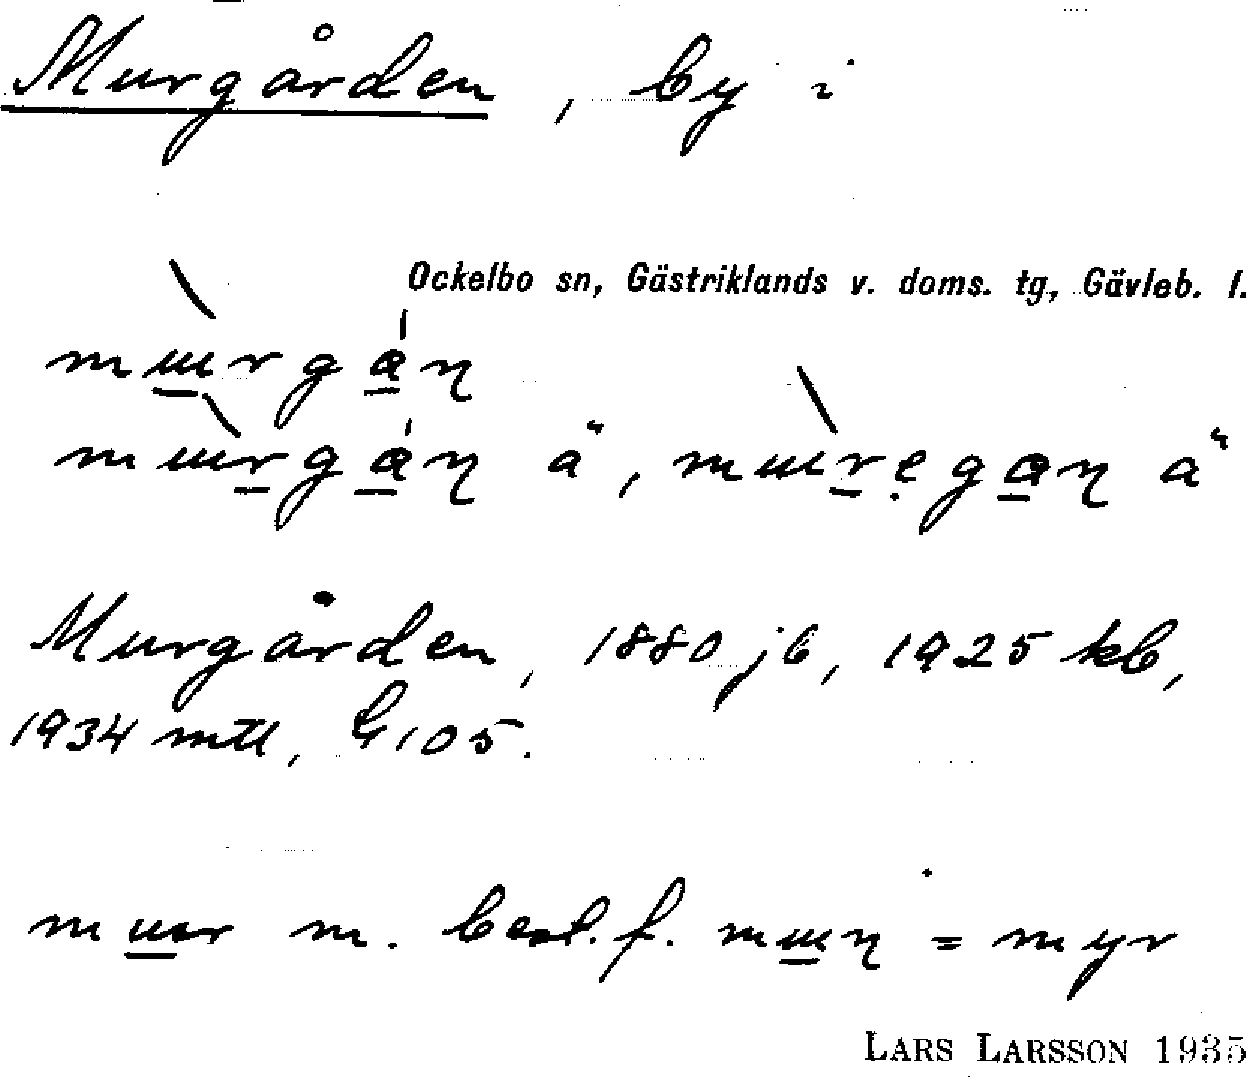 Murgården, by i
Ockelbo sn, Gästriklands v. doms. tg, Gävleb. l.
mɯrgan
mɯrgan ä, mɯrẹgan ä
Murgården, 1880 jb, 1925 kb,
1934 mtl, G 105.
mɯr m. best. f. mɯn = myr
LARS LARSSON 1935